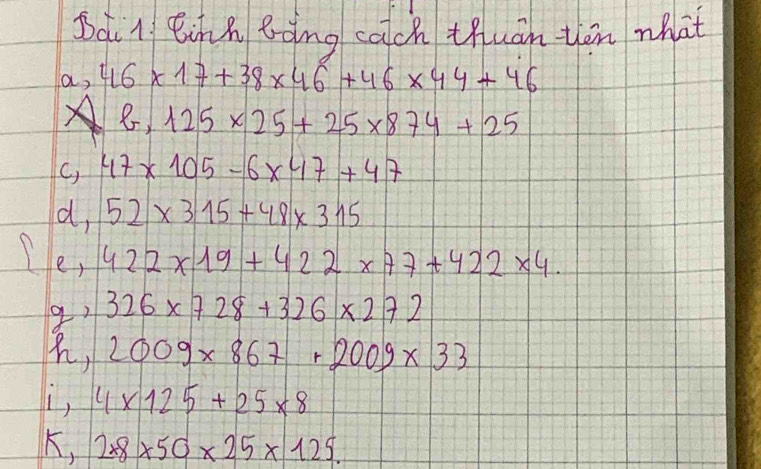 Bài 1: Tính bằng cách thuận tiện nhất
a, 46 x 17 + 38 x 46 + 46 x 44 + 46
b, 125 x 25 + 25 x 874 + 25
c, 47 x 105 - 6 x 47 + 47
d, 52 x 315 + 48 x 315
e, 422 x 19 + 422 x 77 + 422 x 4.
g, 326 x 728 + 326 x 272
h, 2009 x 867 + 2009 x 33
i, 4 x 125 + 25 x 8
K, 2x8 x 50 x 25 x 125.